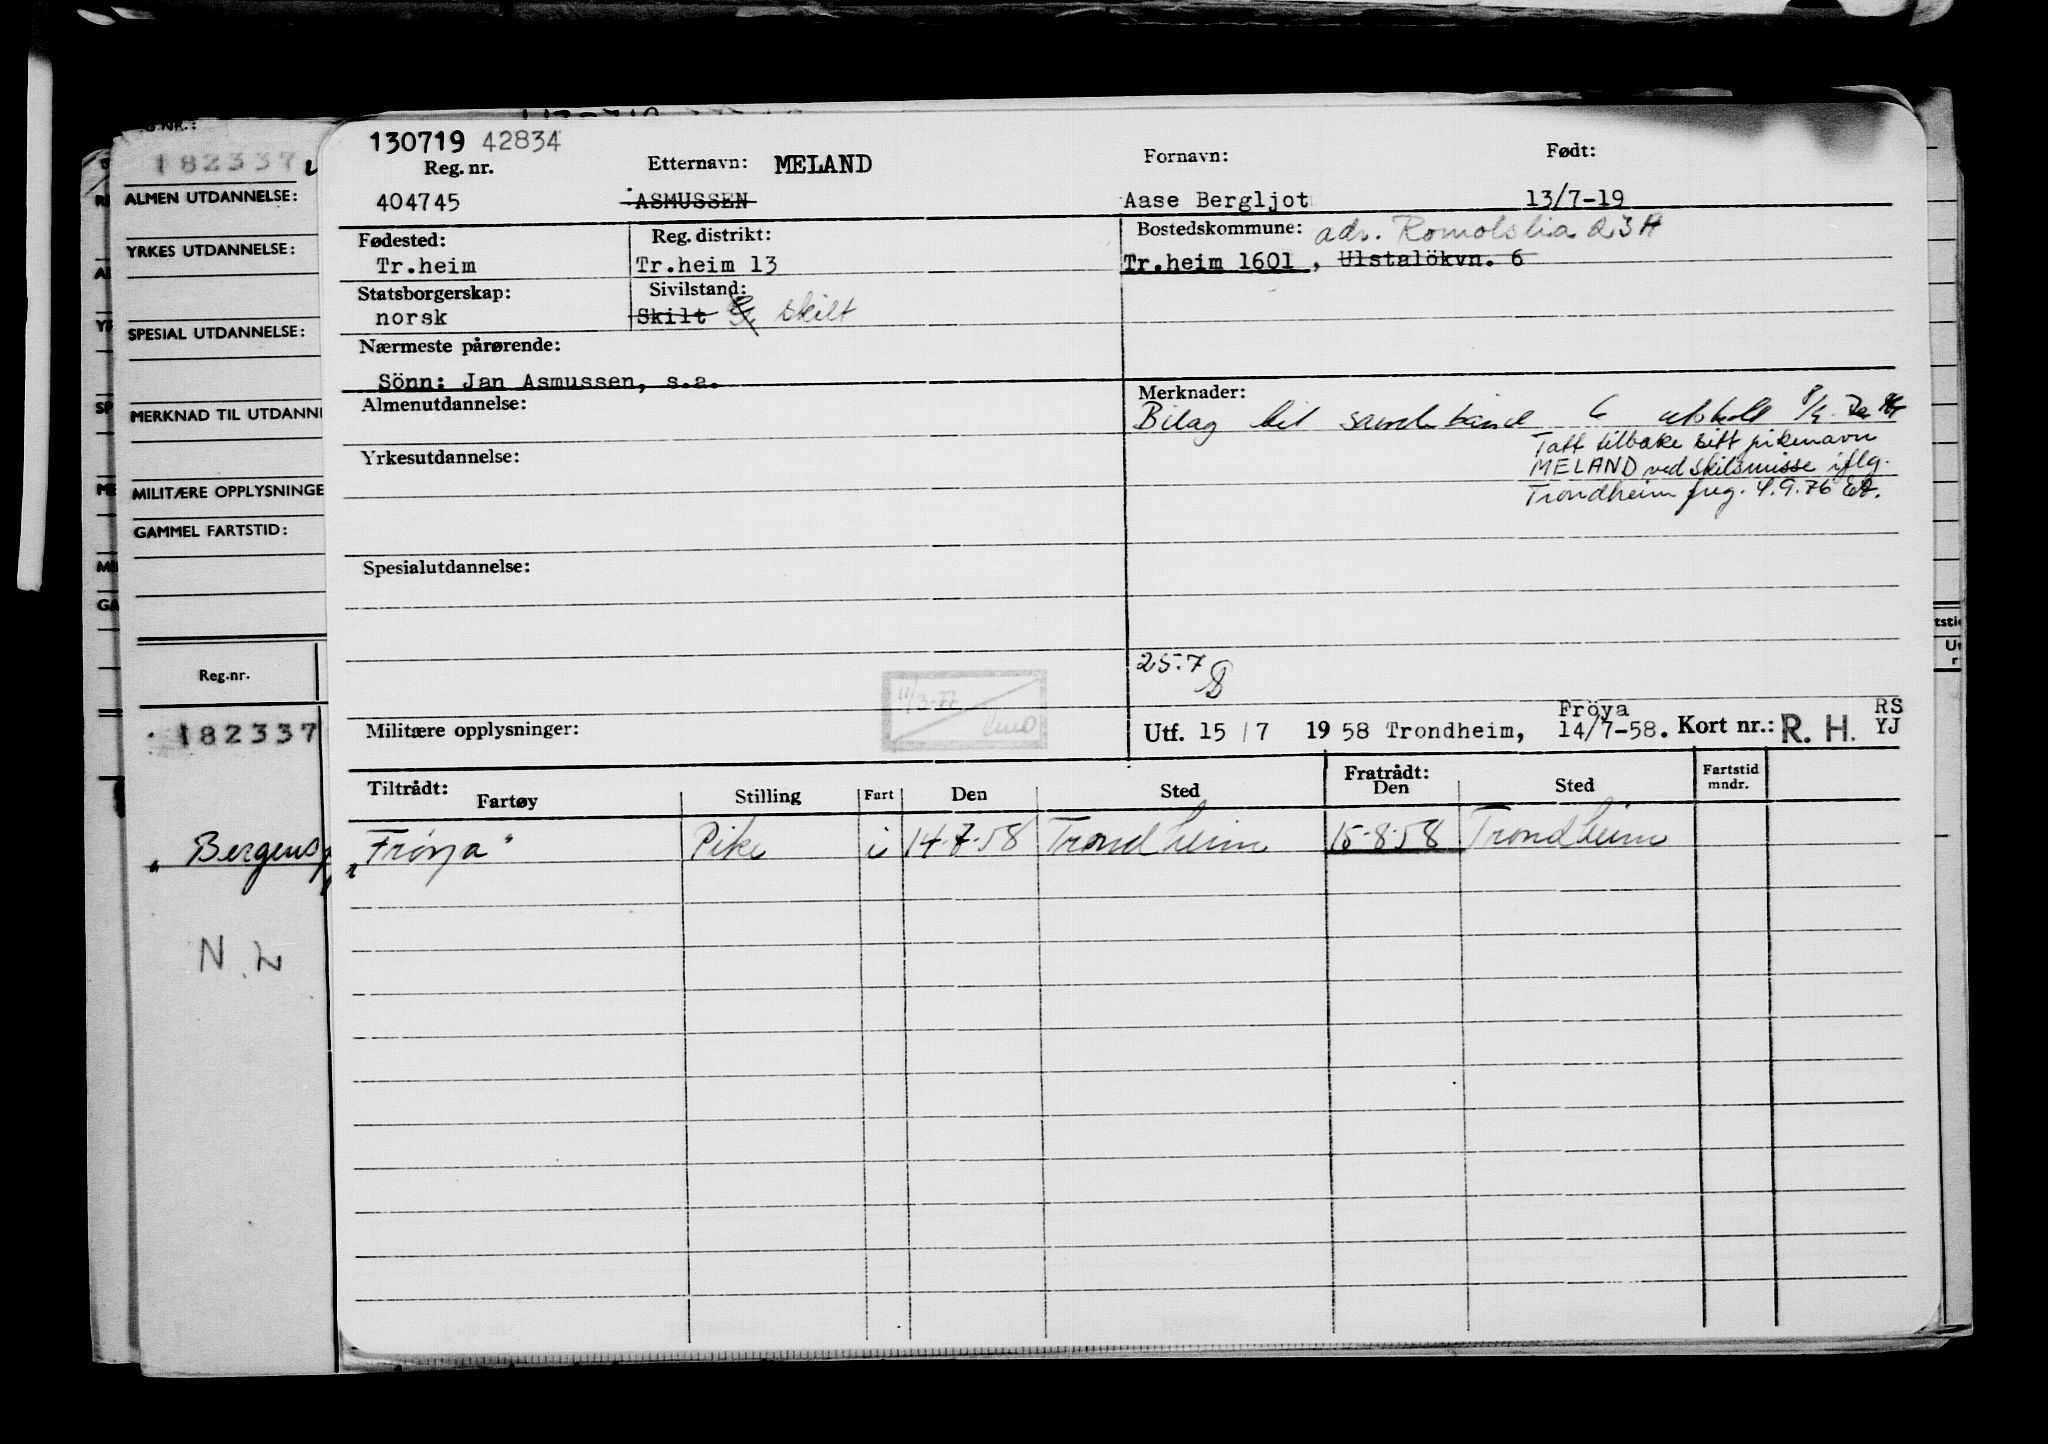 130719 42834
Reg. nr. Etternavn: MELAND Fornavn: Født:
404745 ASMUSSEN Aase Bergljot 13/7-19
Fødested: Reg. distrikt: Bostedskommune: adr. Romolslia 23 A
Tr.heim Tr.heim 13 Tr.heim 1601 , Ulstalökvn. 6
Statsborgerskap: Sivilstand:
norsk Skilt skilt
Nærmeste pårørende:
Sönn: Jan Asmussen, s.a.
Almenutdannelse: Merknader:
Bilag til
Tatt tilbake sitt pikenavn
Yrkesutdannelse: MELAND ved skilsmisse iflg.
Trondheim freg. 4.9.76
Spesialutdannelse:
25.7
11/3-77
Fröya RS
Militære opplysninger: Utf. 15 / 7 19 58 Trondheim, 14/7-58. Kort nr.: R. H. YJ
Tiltrådt: Fratrådt: Fartstid
Fartøy Stilling Fart Den Sted Den Sted mndr.
"Frøya" Pike i 14-7-58 Trondheim 15-8-58 Trondheim
G.NR.:
182337
ALMEN UTDANNELSE:
YRKES UTDANNELSE:
SPESIAL UTDANNELSE:
MERKNAD TIL UTDANN
MILITÆRE OPPLYSNINGE
GAMMEL FARTSTID:
Reg.nr.
182337
" Bergens
N. L